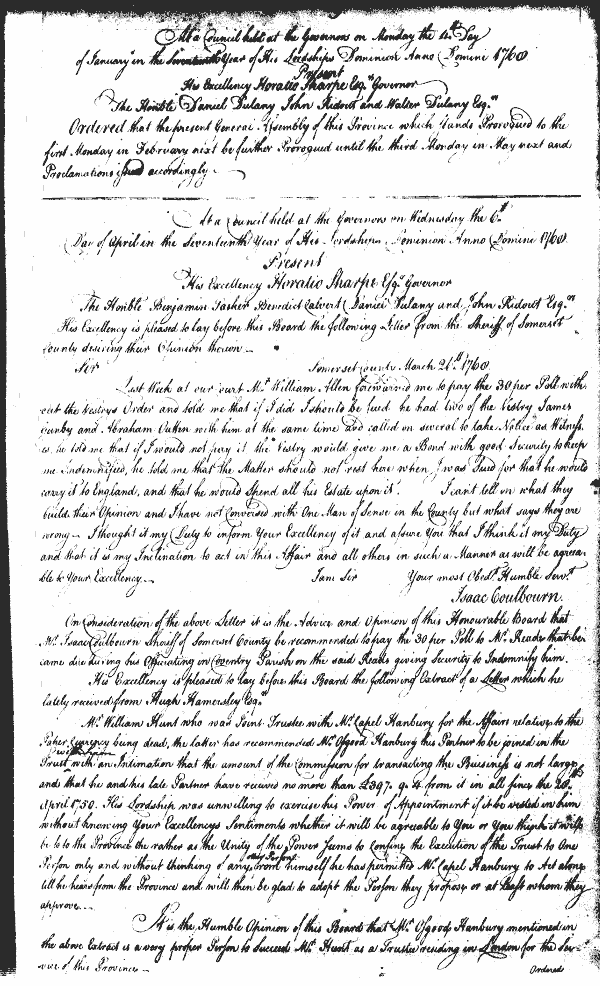 At a Council held at the Governors on Monday the 14th Day
of January in the Seventeenth Year of His Lordships Dominion Anno Domini 1760
Present
His Excellency Horatio Sharpe Esqr. Governor
The Honble Daniel Dulany John Ridout and Walter Dulany Esqrs
Ordered that the present General Assembly of this Province which stands Prorogued to the
first Monday in February next be further Prorogued until the third Monday in May next and
Proclamations issued accordingly.
At a Council held at the Governors on Wednesday the 6th
Day of April in the Seventeenth Year of His Lordships Dominion Anno Domini 1760
Present
His Excellency Horatio Sharpe Esqr. Governor
The Honble Benjamin Tasker Benedict Calvert Daniel Dulany and John Ridout Esqrs
His Excellency is pleased to lay before this Board the following Letter from the Sheriff of Somerset
County desiring their Opinion thereon
Sir Somerset County March 21st 1760
Last Week at our Court Mr. William Allen forewarned me to pay the 30 per Poll with
out the Vestrys Order and told me that if I did I should be sued he had two of the Vestry James
and Abraham with him at the same time and called on several to take Notice as Witness
es, he told me that if I would not pay it the Vestry would give me a Bond with good Security to keep
me Indemnified, he told me that the Matter should not rest here when I was Sued for that he would
carry it to England, and that he would Spend all his Estate upon it. I can't tell on what they
build their Opinion and I have not Conversed with One Man of Sense in the County but what says they are
wrong I thought it my Duty to inform Your Excellency of it and assure You that I think it my Duty
and that it is my Inclination to act in this Affair and all others in such a Manner as will be agreea
ble to Your Excellency. I am Sir Your most Obedt Humble Servt.
Isaac Coulbourn.
On Consideration of the above Letter it is the Advice and Opinion of this Honourable Board that
Mr. Isaac Coulbourn Sheriff of Somerset County be recommended to pay the 30 per Poll to Mr. Reader that be
came due during his Officiating in Coventry Parish on the said Reads giving Security to Indemnify him.
His Excellency is pleased to lay before this Board the following Extract of a Letter which he
lately received from Hugh Hamersley Esqr.
Mr. William Hunt who was Joint Trustee with Mr. Capel Hanbury for the Affairs relative to the
Paper Currency being dead, the latter has recommended Mr. Osgood Hanbury his Partner to be joined in the
Trust with an Intimation that the amount of the Commission for transacting the Business is not large
and that he and his late Partner have received no more than £397. 9. 4 from it in all since the 28th
April 1750. His Lordship was unwilling to exercise his Power of Appointment if it be vested in him
without knowing Your Excellencys Sentiments whether it will be agreeable to You or You think it will
be so to the Province the rather as the Unity of the Power seems to Confine the Execution of the Trust to One
Person only and without thinking of any other Person from himself he has permitted Mr. Capel Hanbury to Act alone
till he hears from the Province and will then be glad to adopt the Person they propose or at least whom they
approve.
It is the Humble Opinion of this Board that Mr. Osgood Hanbury mentioned in
the above Extract is a very proper Person to Succeed Mr. Hunt as a Trustee residing in London for the Ser-
vice of this Province
Ordered